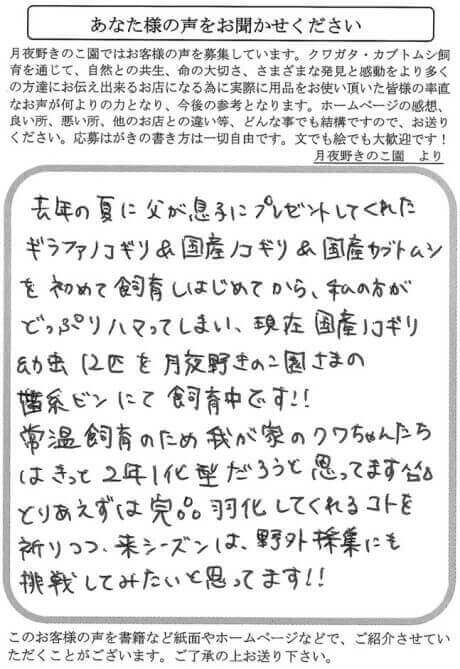 あなた様の声をお聞かせください
月夜野きのこ園ではお客様の声を募集しています。クワガタ・カブトムシ飼
育を通じて、自然との共生、命の大切さ、さまざまな発見と感動をより多く
の方達にお伝え出来るお店になる為に実際に用品をお使い頂いた皆様の率直
なお声が何よりの力となり、今後の参考となります。ホームページの感想、
良い所、悪い所、他のお店との違い等、どんな事でも結構ですので、お送り
ください。応募はがきの書き方は一切自由です。文でも絵でも大歓迎です！
月夜野きのこ園　より
去年の夏に父が息子にプレゼントしてくれた
ギラファノコギリ＆国産ノコギリ＆国産カブトムシ
を初めて飼育しはじめてから、私の方が
どっぷりハマってしまい、現在国産ノコギリ
幼虫12匹を月夜野きのこ園さまの
菌糸ビンにて飼育中です!!
常温飼育のため我が家のクワちゃんたち
はきっと2年1化型だろうと思ってます
とりあえずは完品羽化してくれるコトを
祈りつつ、来シーズンは、野外採集にも
挑戦してみたいと思ってます!!
このお客様の声を書籍など紙面やホームページなどで、ご紹介させてい
ただくことがございます。ご了承の上お送り下さい。